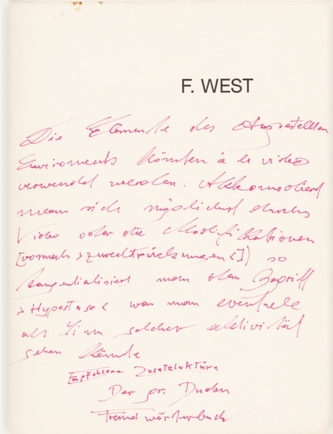 F. WEST
Die Elemente des Ausgestellten
Enviroments könnten à la video
verwendet werden. Akkomodiert
man sich möglichst
Video oder die Modifikationen
[vormals >zurechtrückungen<] so
man den Begriff
>Hypostase< was man eventuell
als Sinn solcher aktivität
sehen könnte
Empfohlene Zusatzlektüre
Der gr. Duden
Fremdwörterbuch